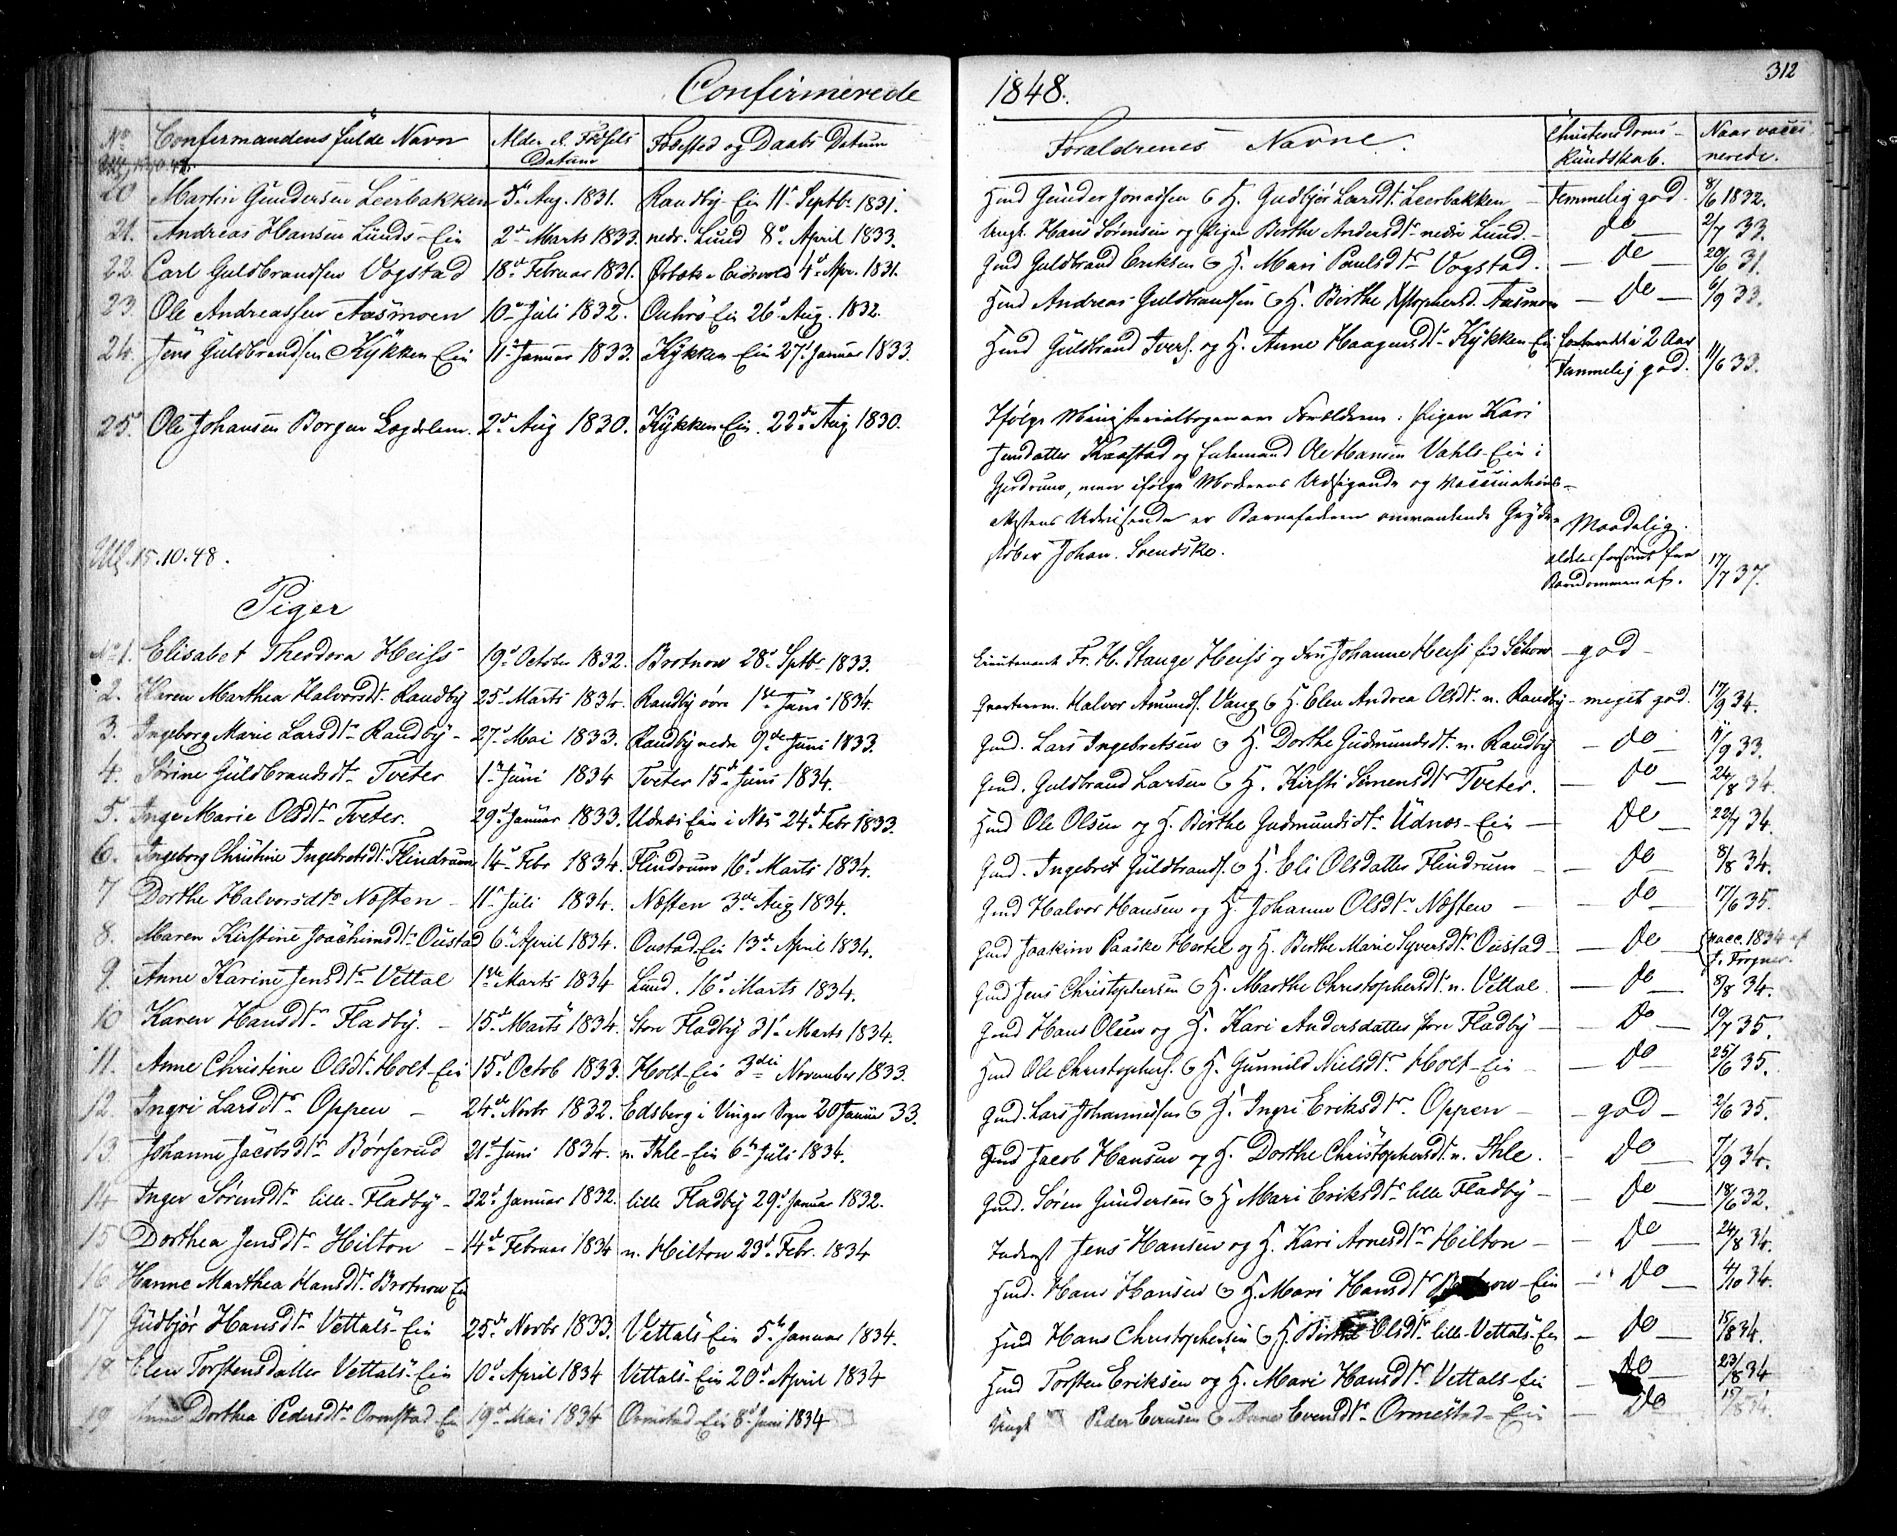 Confirmerede 1848.
312
No Confirmandens fulde Navn Alder el. Fødsels Datum Fødested og Daabs Datum Forældrenes Navne. Christendoms-Kundskab. Naar vaccinerede.
20 Martin Gundersen Leerbakken Aug. 1831. Randby Ein 11t Septb. 1831. Gunder Jonassen & H. Gudbjør Larsdtr Leerbakken temmelig god. 8/6 1832.
21. Andreas Hansen Lunds-Ein 2d Marts 1833. nedr. Lund 8d April 1833. Ungk. Hans Sørensen og Pigen Birthe Andersdtr nedre Lund. do 2/7 33.
22 Carl Guldbrandsen Vogstad 18d Februar 1831. Eidsvold 4d Apr. 1831. Gmd Guldbrand Eriksen & H. Mari Paulsdtr Vogstad. do 20/6 31.
23. Ole Andreassen Aasmoen 10d Juli 1832. Ein 26d Aug. 1832. Hmd Andreas Guldbrandsen & H. Birthe Aasmoen do 6/9 33.
24. Jens Guldbrandsen Kykken Ein 11t Januar 1833. Kykken Ein 27d Januar 1833. Hmd Guldbrand Ivers. og H. Anne Haagensdtr Kykken Ein 2 Aar
temmelig god. 11/6 33.
25. Ole Johansen Borgen 2d Aug 1830. Kykken Ein. 22de Aug 1830. Ifølge Ministerialbogen ere Forældrene: Pigen Kari
Jensdatter Kraastad og Ole Hansen Vahls-Ein i
Gjerdrum, men ifølge Moderens Udsigende og Vaccinations-
Attestens Udvisende er Barnefaderen omvankende
Johan. Svendske. Maadelig.
Barndommen af. 17/7 37.
15.10.48.
Piger
No 1. Elisabet Theodora Heiss 19d October 1832. Brotnow 28d Sptbr 1833. Lieutenant Fr. H. Stange Heiss og Fru Johanne Heiss god
2. Karen Marthea Halvorsdtr Randby 25d Marts 1834. Randby øvre 1ste Juni 1834 Halvor Amunds. Vang & H. Elen Andrea Olsdtr n. Randby meget god. 17/9 34.
3. Ingeborg Marie Larsdtr Randby 27d Mai 1833. Randby nedre 9de Juni 1833. Gmd. Lars Ingebretsen & H. Dorthe Gudmundsdtr n. Randby do 11/9 33.
4. Sørine Guldbrandsdtr Tveter 1ste Juni 1834 Tveter 15d Juni 1834. Gmd. Guldbrand Larsen & H. Kirsti Simensdtr Tveter. do 24/8 34.
5. Inge Marie Olsdtr Tveter. 29d Januar 1833. Udnæs Ein i Næs 24d Febr 1833. Hmd Ole Olsen og H. Birthe Gudmundsdtr Udnæs-Ein do 22/7 34.
6. Ingeborg Christine Ingebretsdtr Flindrum 14d Febr 1834. Flindrum 16d Marts 1834. Gmd. Ingebret Guldbrands. & H. Eli Olsdatter Flindrum do 8/8 34.
7 Dorthe Halvorsdtr Næsten 11t Juli 1834. Næsten 3de Aug 1834. Gmd Halvor Hansen og H. Johanne Olsdtr Næsten do 17/6 35.
8. Maren Kirstine Joachimsdtr Oustad 6t April 1834. Oustad Ein 13d April 1834. Gmd Joakim Paaske Hertel og H. Birthe Marie Syversdtr Oustad do vacc. 1834 af
9. Anne Karine Jensdtr Vettal 1ste Marts 1834 Lund. 16d Marts 1834. Gmd Jens Christophersen & H. Marthe Christophersdtr n. Vettal. do 8/8 34.
10 Karen Hansdtr Fladby. 15d Marts 1834. Store Fladby 31t Marts 1834. Gmd Hans Olsen og H. Kari Andersdatter store Fladby do 19/7 35.
11. Anne Christine Olsdtr Holt-Ein 15d Octob 1833. Holt-Ein 3die November 1833. Hmd Ole Christophers. & H. Gunnild Nielsdtr Holt-Ein do 25/6 35.
12. Ingri Larsdtr Oppen 24de Novbr 1832. Edsberg i Vinger Sogn 20 Januar 33. Gmd. Lars Johannessen & H. Ingri Eriksdtr Oppen god 2/6 35.
13. Johanne Jacobsdtr Børserud 21d Juni 1834. n. Ihle-Ein 6te Juli 1834. Hmd Jacob Hansen og H. Dorthe Christophersdtr n. Ihle. do 7/9 34.
14 Inger Sørensdtr lille-Fladby 22d Januar 1832. lille Fladby 29d Januar 1832. Gmd. Søren Gundersen & H Mari Eriksdtr lille Fladby do 18/6 32.
15 Dorthea Jensdtr Hilton 14d Februar 1834 n. Hilton 23d Febr. 1834 Inderst Jens Hansen og H. Kari Arnesdtr Hilton do 24/8 34.
16 Hanne Marthea Hansdtr Brotnow Ein Hmd. Hans Hansen & H. Mari Hansdtr Brotnow-Ein do 4/10 34.
17 Gudbjør Hansdtr Vettals-Ein 25de Novbr 1833. Vettals-Ein 5te Januar 1834. Hmd Hans Christophersen & H Birthe Olsdtr lille-Vettals-Ein do 15/8 34.
18 Elen Torstensdatter Vettals-Ein 10d April 1834 Vettals-Ein 20d April 1834 Hmd Torsten Eriksen og H. Mari Hansdtr Vettals-Ein do 23/8 34
19 Anne Dorthea Pedersdtr Ormstad-Ein 19d Mai 1834 Ormstad-Ein 8d Juni 1834 Ungk Peder & Anne Evensdtr Ormestad-Ein do